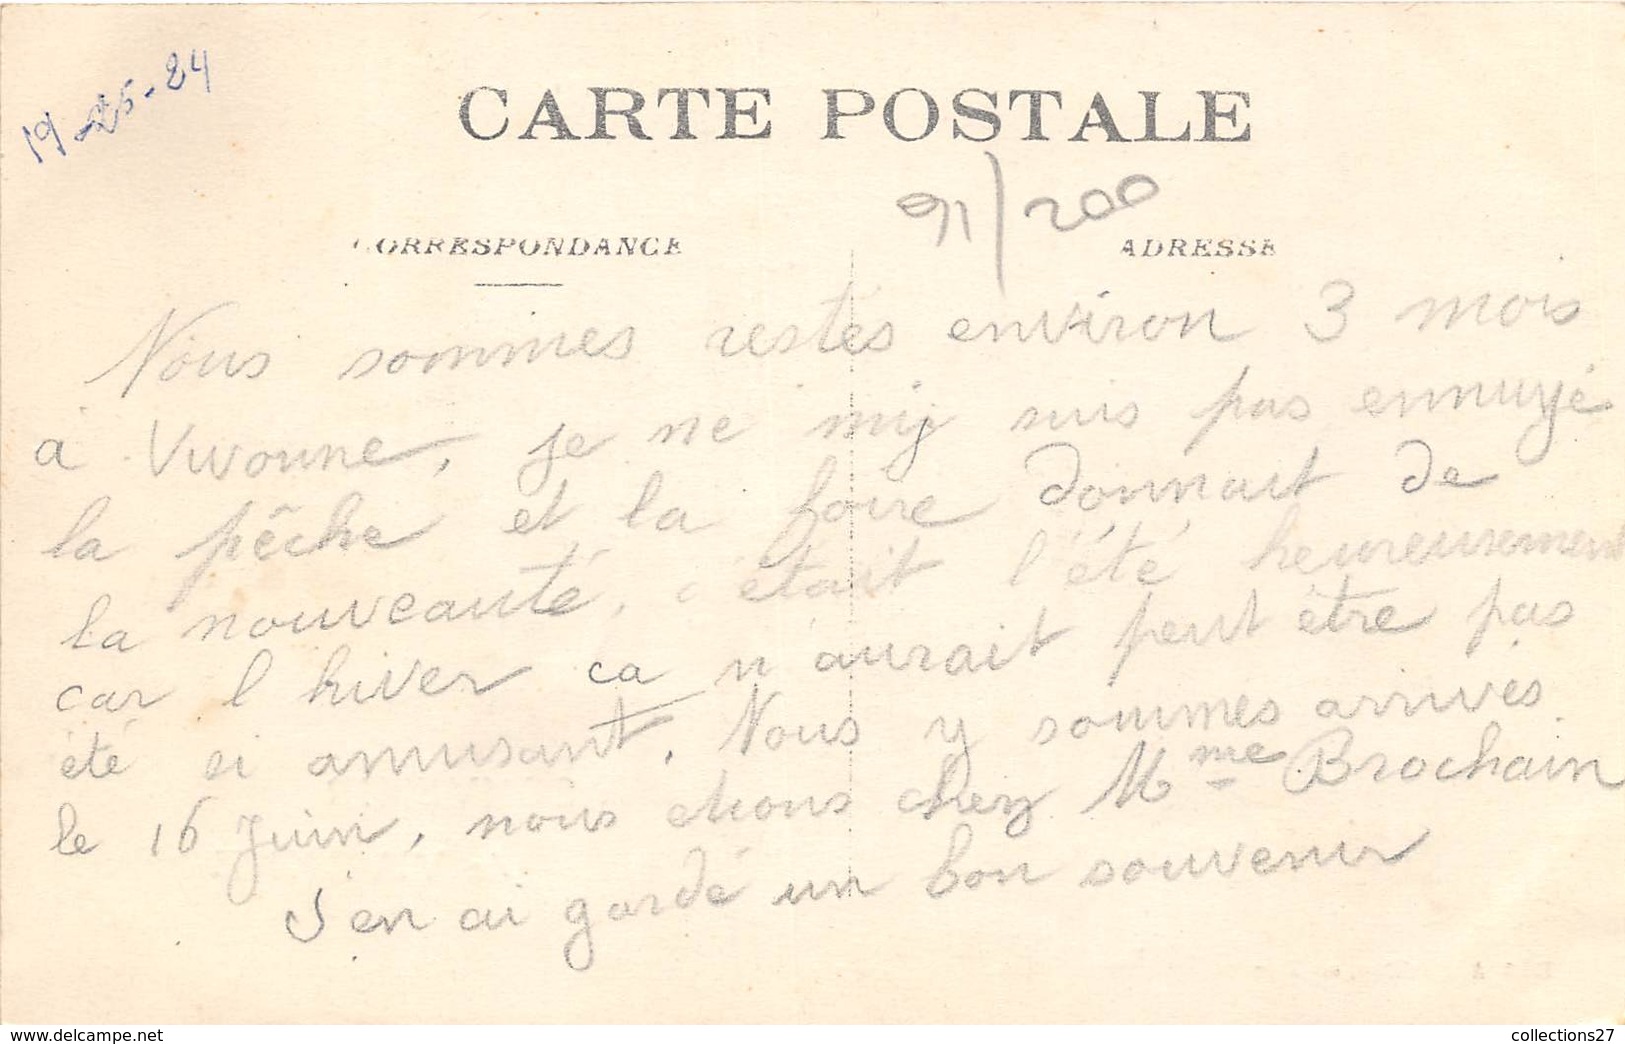 19-25-24
CARTE POSTALE
91/200
CORRESPONDANCE
ADRESSE
Nous sommes restes environ 3 mois
à Vivonne, je ne m'y suis pas ennuyé
la pêche et la foire donnait de
la nouveauté, c'était l'été heureusement
car l hiver ca n'aurait peut être pas
été si amusant. Nous y sommes arrivés
le 16 Juin, nous etions chez Mme Brochain
J'en ai gardé un bon souvenir
www.delcampe.net
collections27